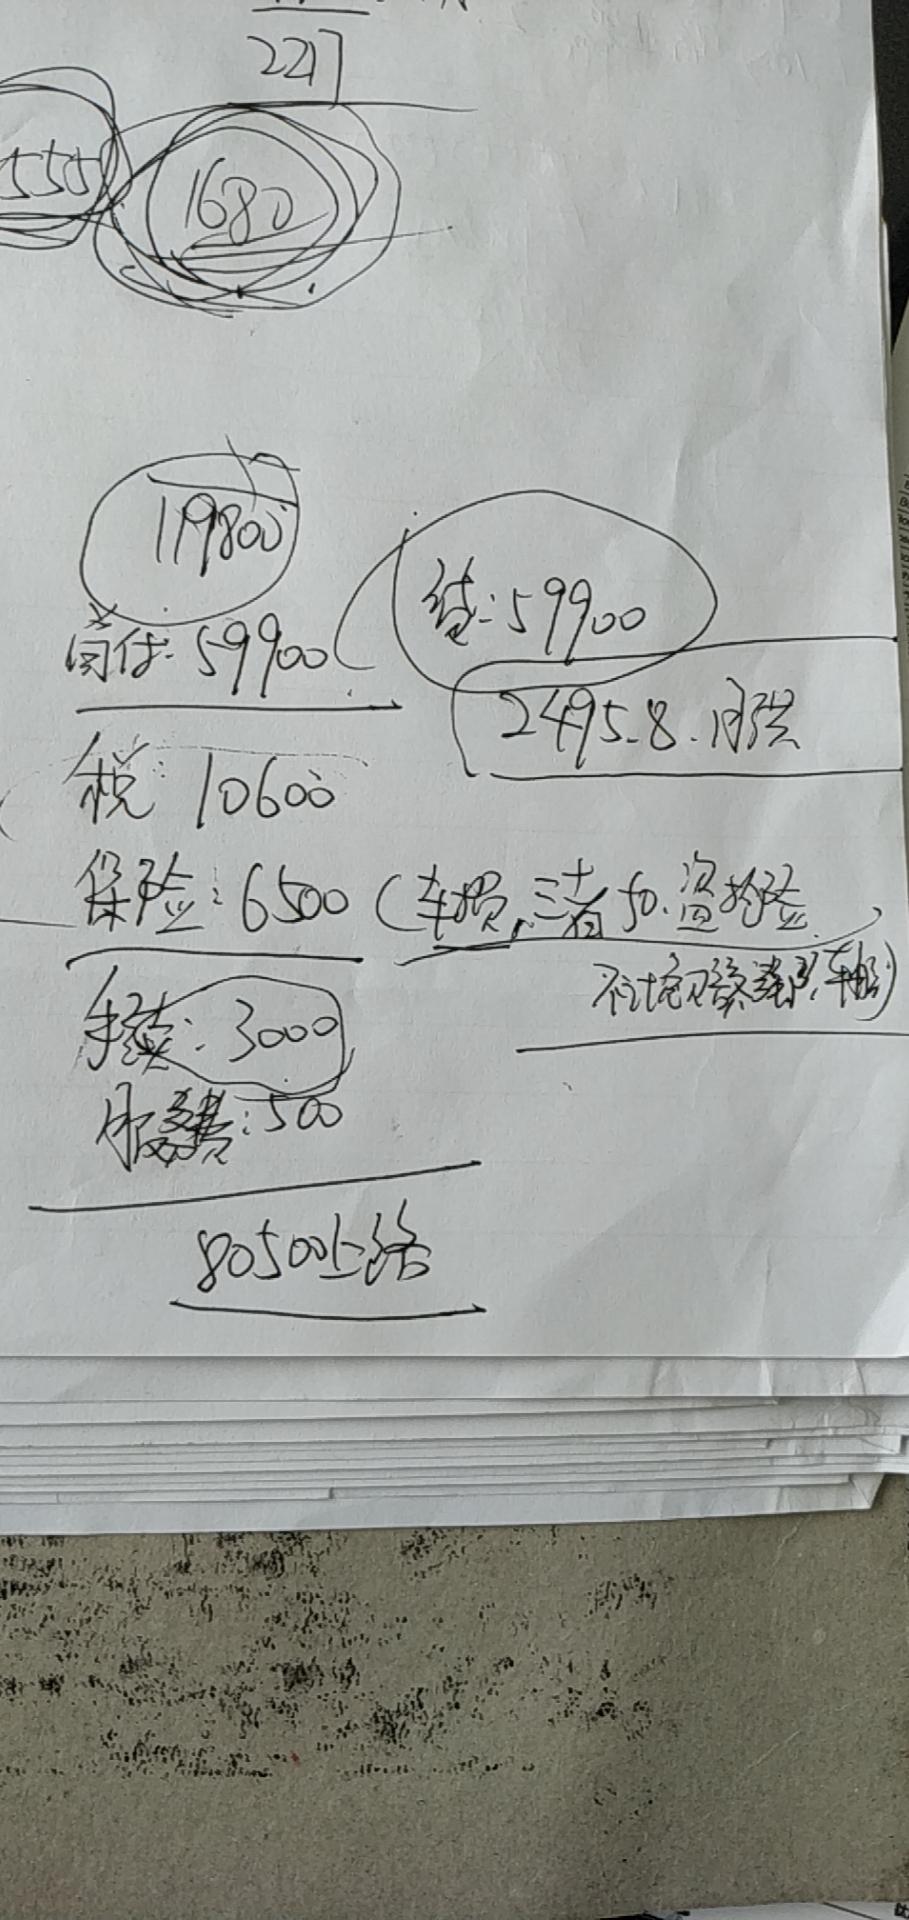 2217
555
1680
119800
首付: 59900
贷: 59900
2495.8.月供
税: 10600
保险: 6500 (车损,三者50.盗抢险
不计免赔
手续: 3000
服务费: 500
80500上路